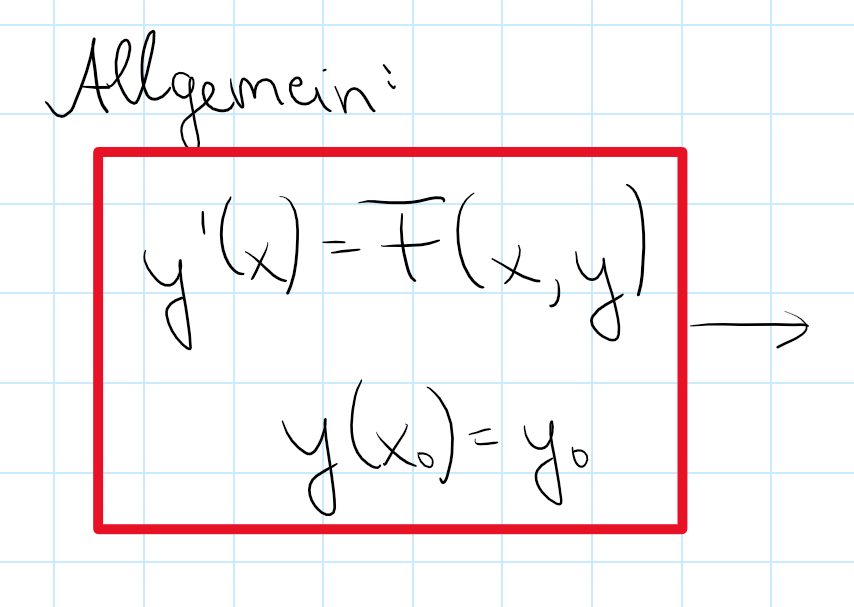 Allgemein:
y'(x) = F(x, y)
y(x₀) = y₀